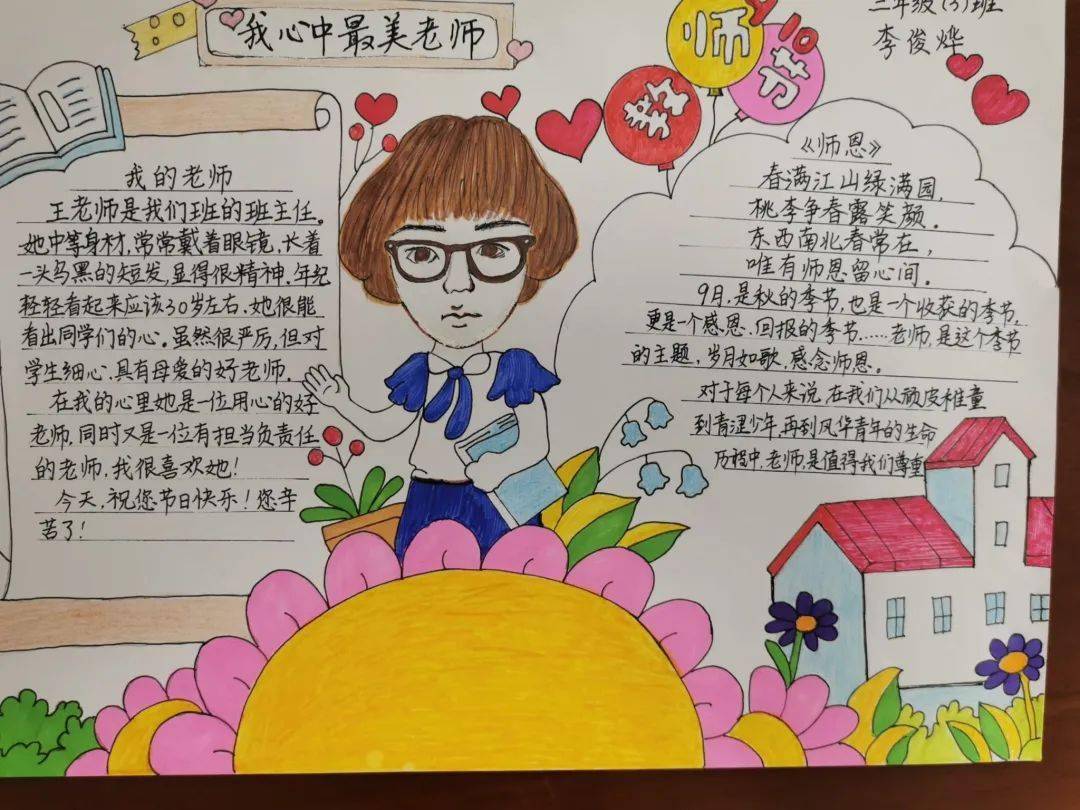 我心中最美老师
教师节
9.10
三年级(3)班
李俊烨
我的老师
王老师是我们班的班主任。
她中等身材,常常戴着眼镜,长着
一头乌黑的短发,显得很精神.年纪
轻轻看起来应该30岁左右.她很能
看出同学们的心。虽然很严厉,但对
学生细心.具有母爱的好老师.
在我的心里她是一位用心的好
老师,同时又是一位有担当负责任
的老师,我很喜欢她!
今天,祝您节日快乐!您辛
苦了!
《师恩》
春满江山绿满园,
桃李争春露笑颜.
东西南北春常在,
唯有师恩留心间.
9月,是秋的季节,也是一个收获的季节,
更是一个感恩、回报的季节……老师,是这个季节
的主题,岁月如歌,感念师恩。
对于每个人来说,在我们从顽皮稚童
到青涩少年,再到风华青年的生命
历程中,老师是值得我们尊重